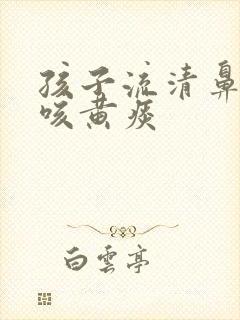 孩子流清鼻
咳黄痰
白雲亭